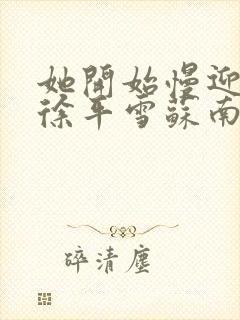 她開始慢迎
徐平雪蘇南
碎清塵